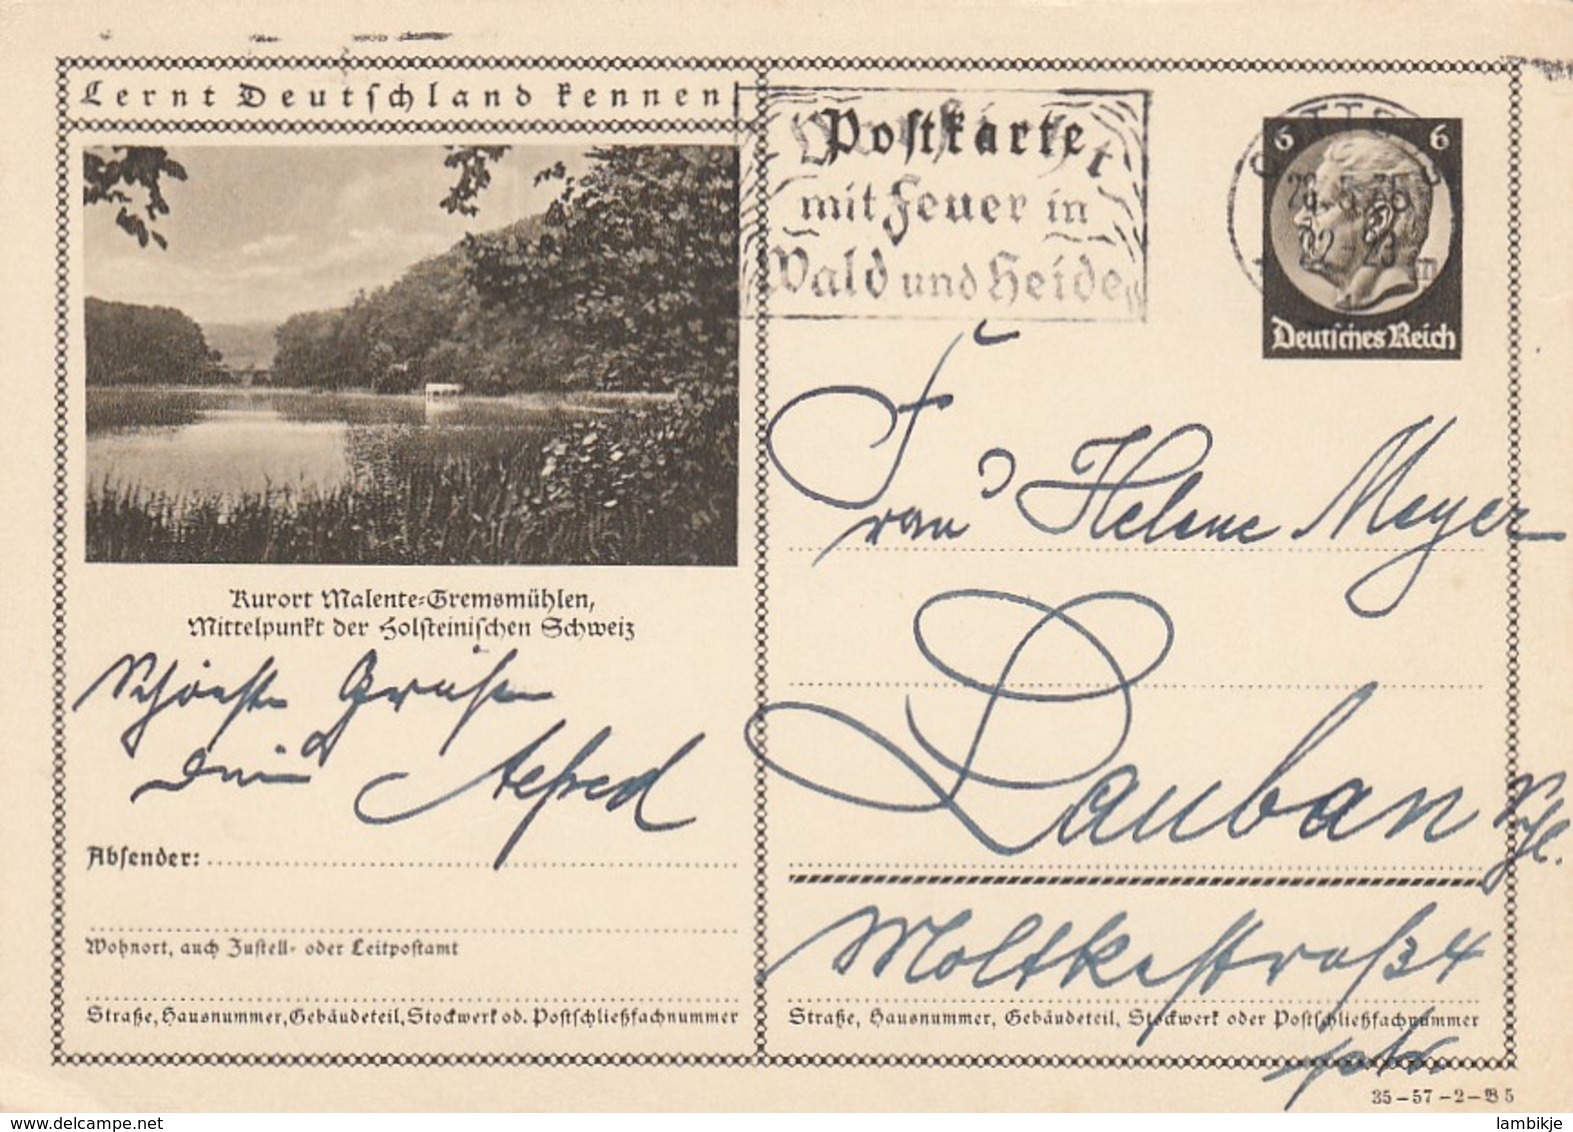 Lernt Deutschland kennen
Postkarte
mit Feuer in
Wald und Heide
6 6
Deutsches Reich
Kurort Malente-Gremsmühlen,
Mittelpunkt der Holsteinischen Schweiz
Schönste Grüße
Dein Alfred
Frau Helene Meyer
Lauban Schl.
Moltkestraße 4
Absender:
Wohnort, auch Zustell- oder Leitpostamt
Straße, Hausnummer, Gebäudeteil, Stockwerk od. Postschließfachnummer
Straße, Hausnummer, Gebäudeteil, Stockwerk oder Postschließfachnummer
35-57-2-B5
delcampe.net
lambikje